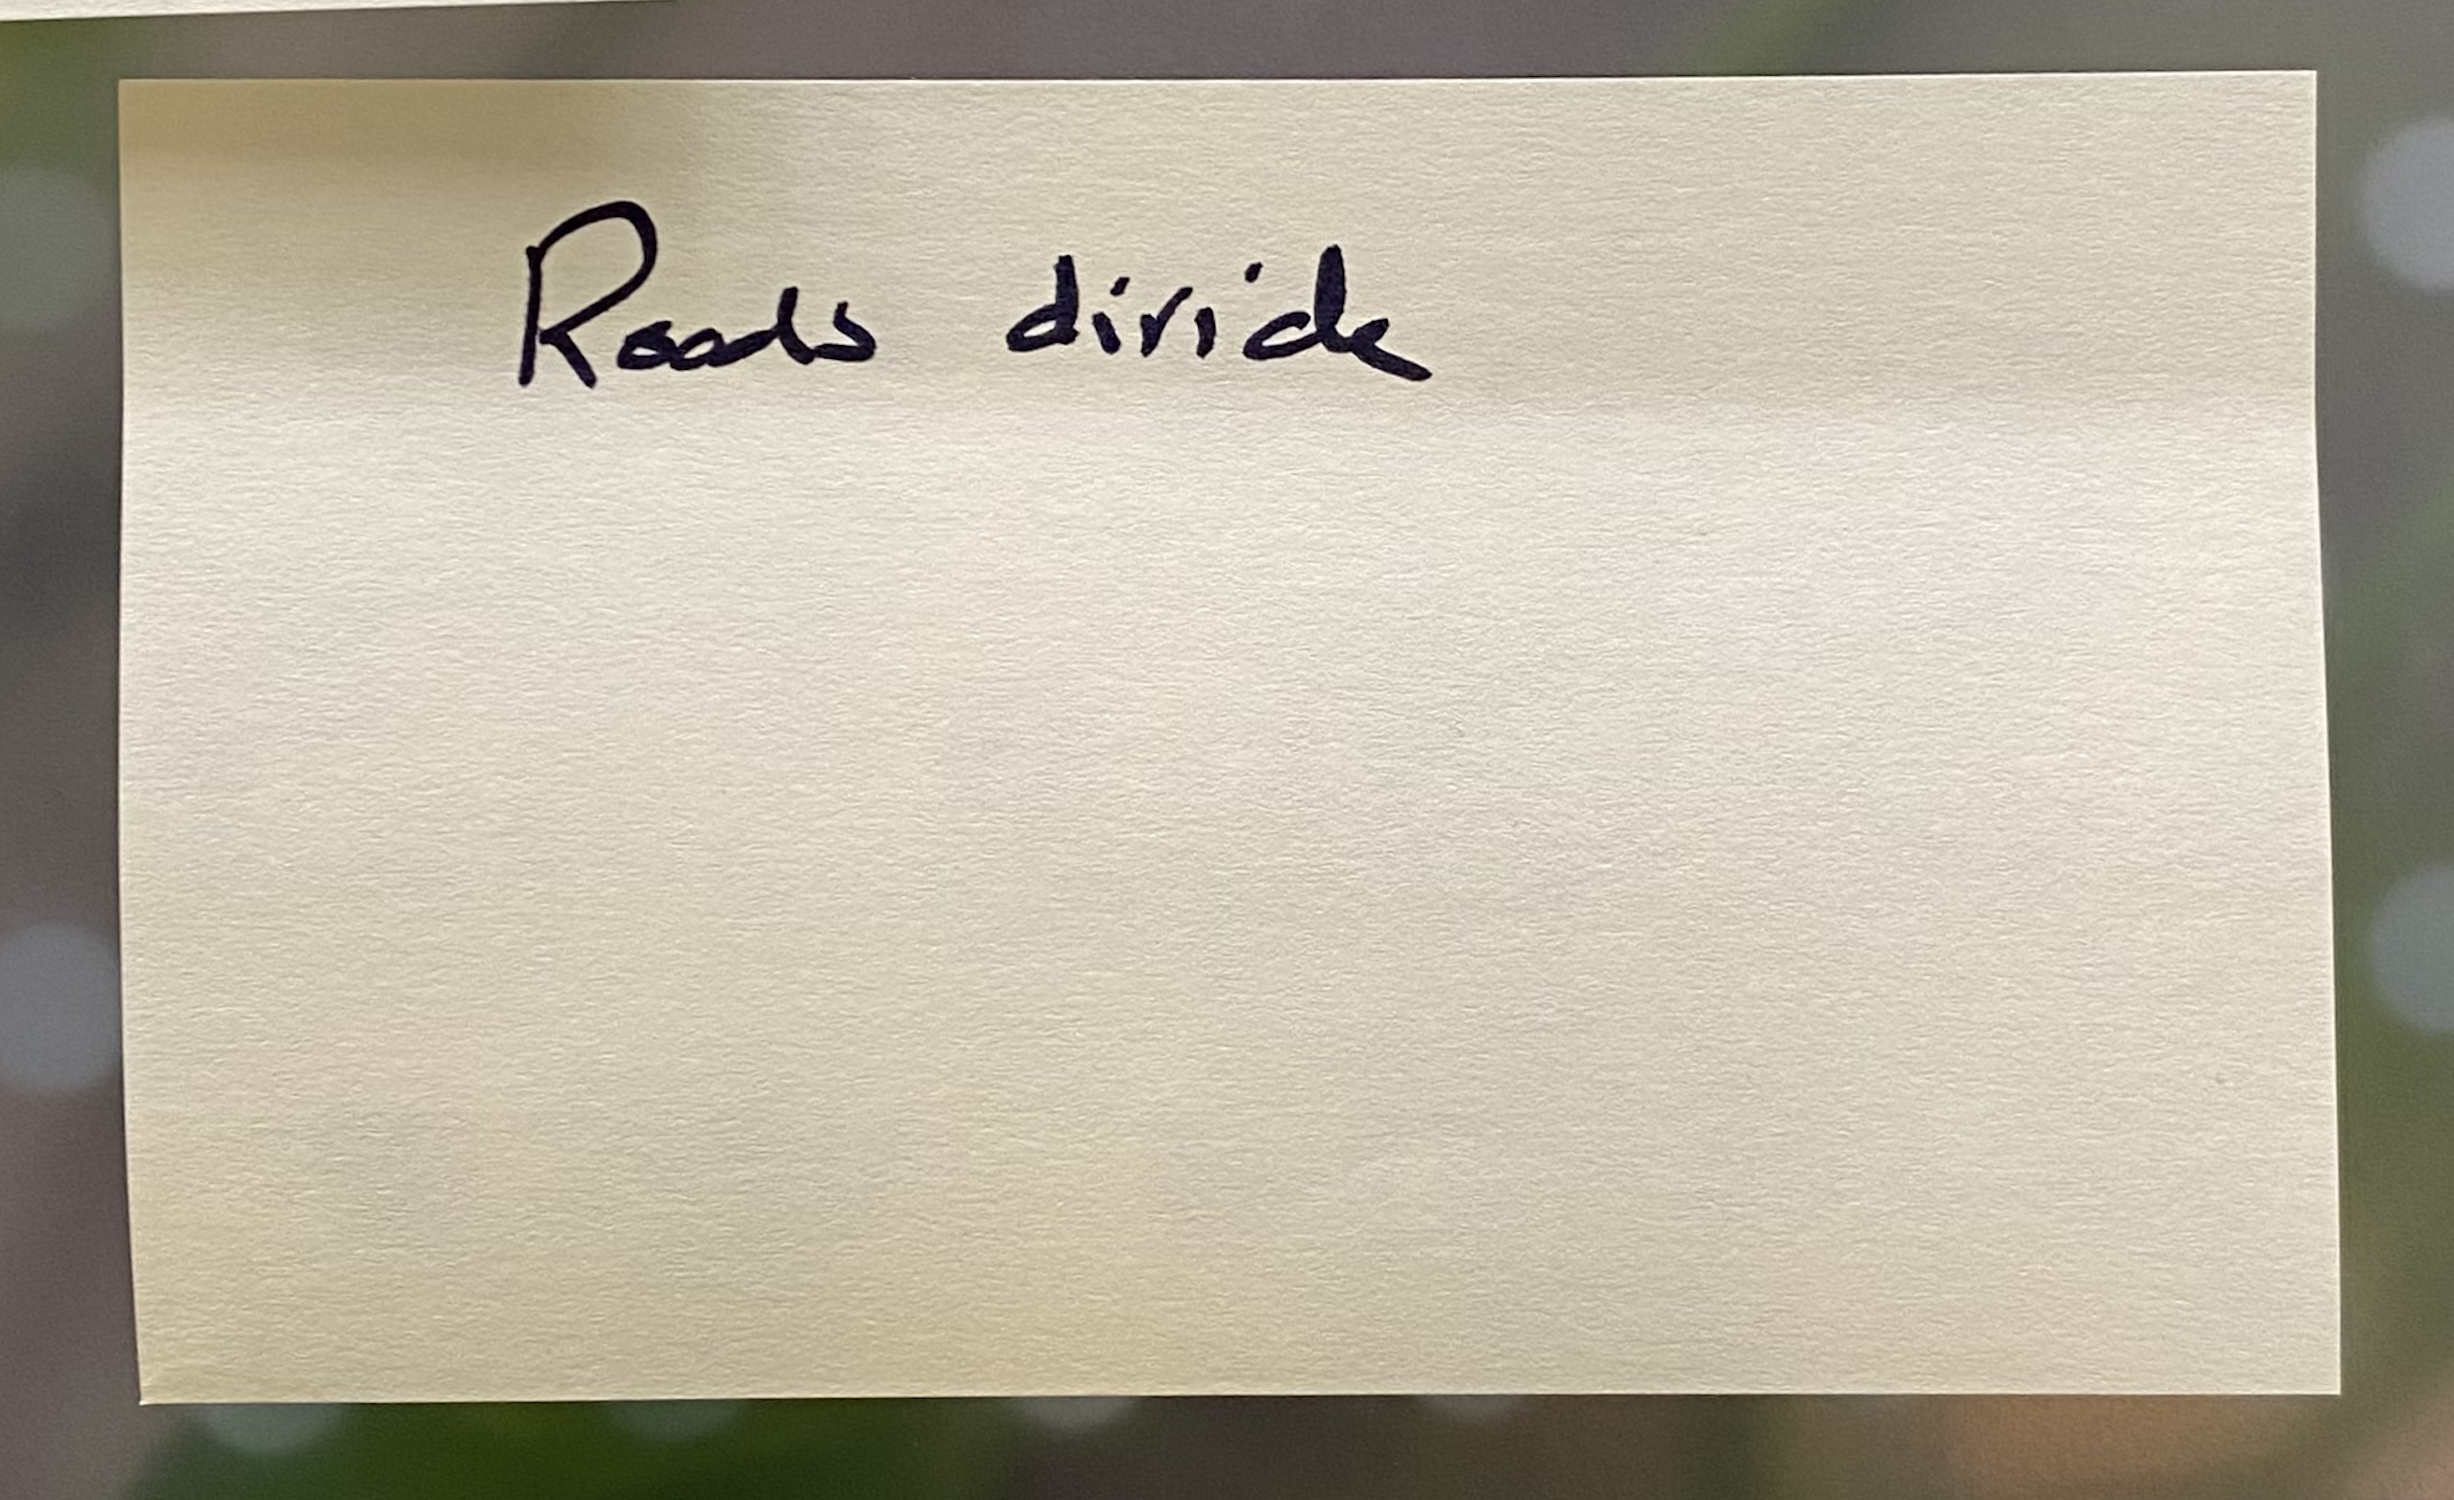 Roads divide